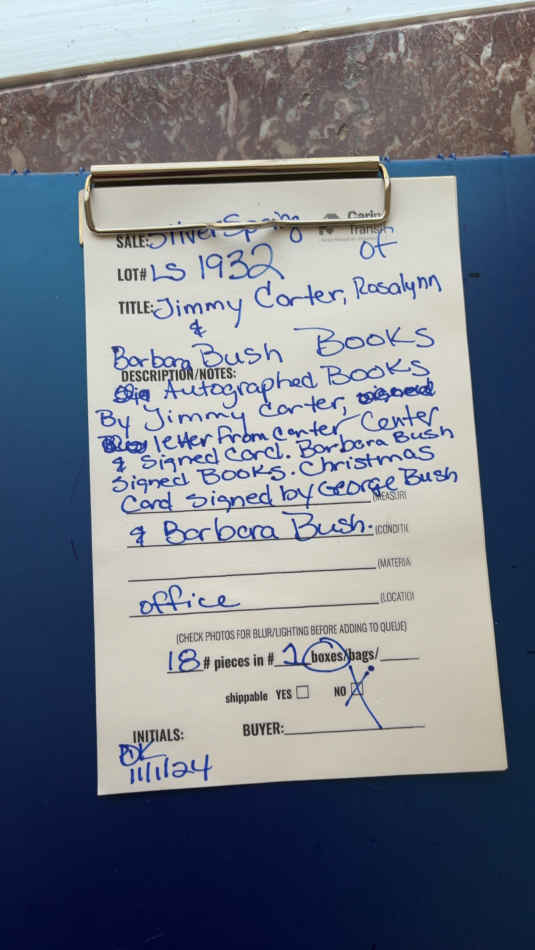 SALE: Silver Spring
Caring
Transit
LOT# LS 1932 of
TITLE: Jimmy Carter, Rosalynn
&
Barbara Bush Books
DESCRIPTION/NOTES:
Autographed Books
By Jimmy Carter,
letter from Carter Center
& Signed Card. Barbara Bush
Signed Books. Christmas
Card Signed by George Bush
(MEASURE
& Barbara Bush. (CONDITIO
(MATERIA
office (LOCATION
(CHECK PHOTOS FOR BLUR/LIGHTING BEFORE ADDING TO QUEUE)
18 # pieces in # 2 boxes/bags/
shippable YES NO
INITIALS: BUYER:
DK
11/1/24